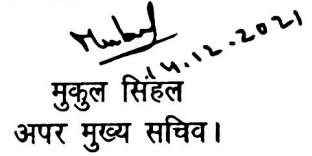 14.12.2021
मुकुल सिंहल
अपर मुख्य सचिव।